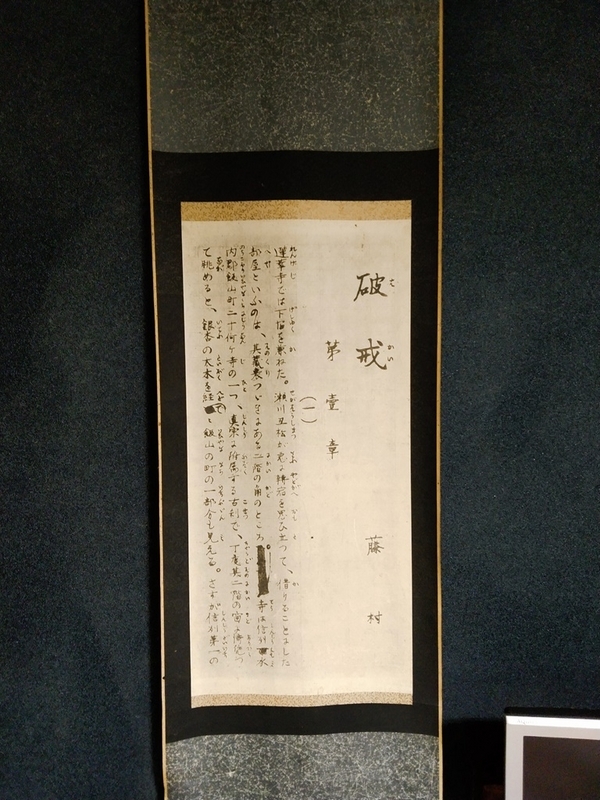 破戒
はかい
第壹章
(一)
藤村
蓮華寺では下宿を兼ねた。瀬川丑松が急に轉宿を思ひ立つて、借りることにした
部屋といふのは、其蔵裏つゞきにある二階の角のところ。寺は信州水
内郡飯山町二十何ヶ寺の一つ、真宗に附属する古刹で、丁度其二階の窓に倚凭つ
て眺めると、銀杏の大木を経て飯山の町の一部分も見える。さすが信州第一の